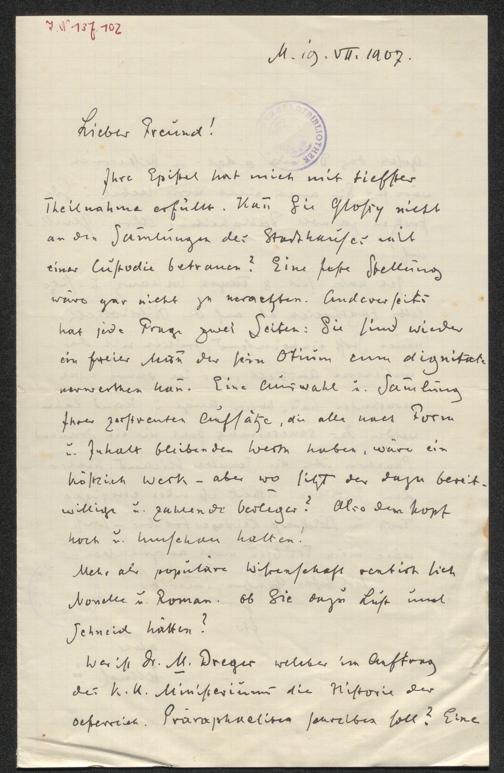 I.N. 137.102
M. 19. VII. 1907.
BIBLIOTHEK
Lieber Freund!
Ihre Epistel hat mich mit tiefster
Theilnahme erfüllt. Kan̄ Sie Glossy nicht
an den Sam̄lungen des Stadthauses mit
einer Custodie betrauen? Eine feste Stellung
wäre gar nicht zu verachten. Anderseits
hat jede Frage zwei Seiten: Sie sind wieder
ein freier Man̄ der sein Otium cum dignitate
verwerthen kan̄. Eine Auswahl u. Sam̄lung
Ihrer zerstreuten Aufsätze, die alle nach Form
u. Inhalt bleibenden Werth haben, wäre ein
köstlich Werk – aber wo sitzt der dazu bereit-
willige u. zahlende Verleger? Also den Kopf
hoch u. Umschau halten!
Mehr als populäre Wissenschaft rentirt sich
Novelle u. Roman. Ob Sie dazu Lust und
Schneid hätten?
Wer ist Dr. M. Dreger welcher im Auftrag
des K. K. Ministeriums die Historie der
oesterreich. Präraphaeliten schreiben soll? Eine